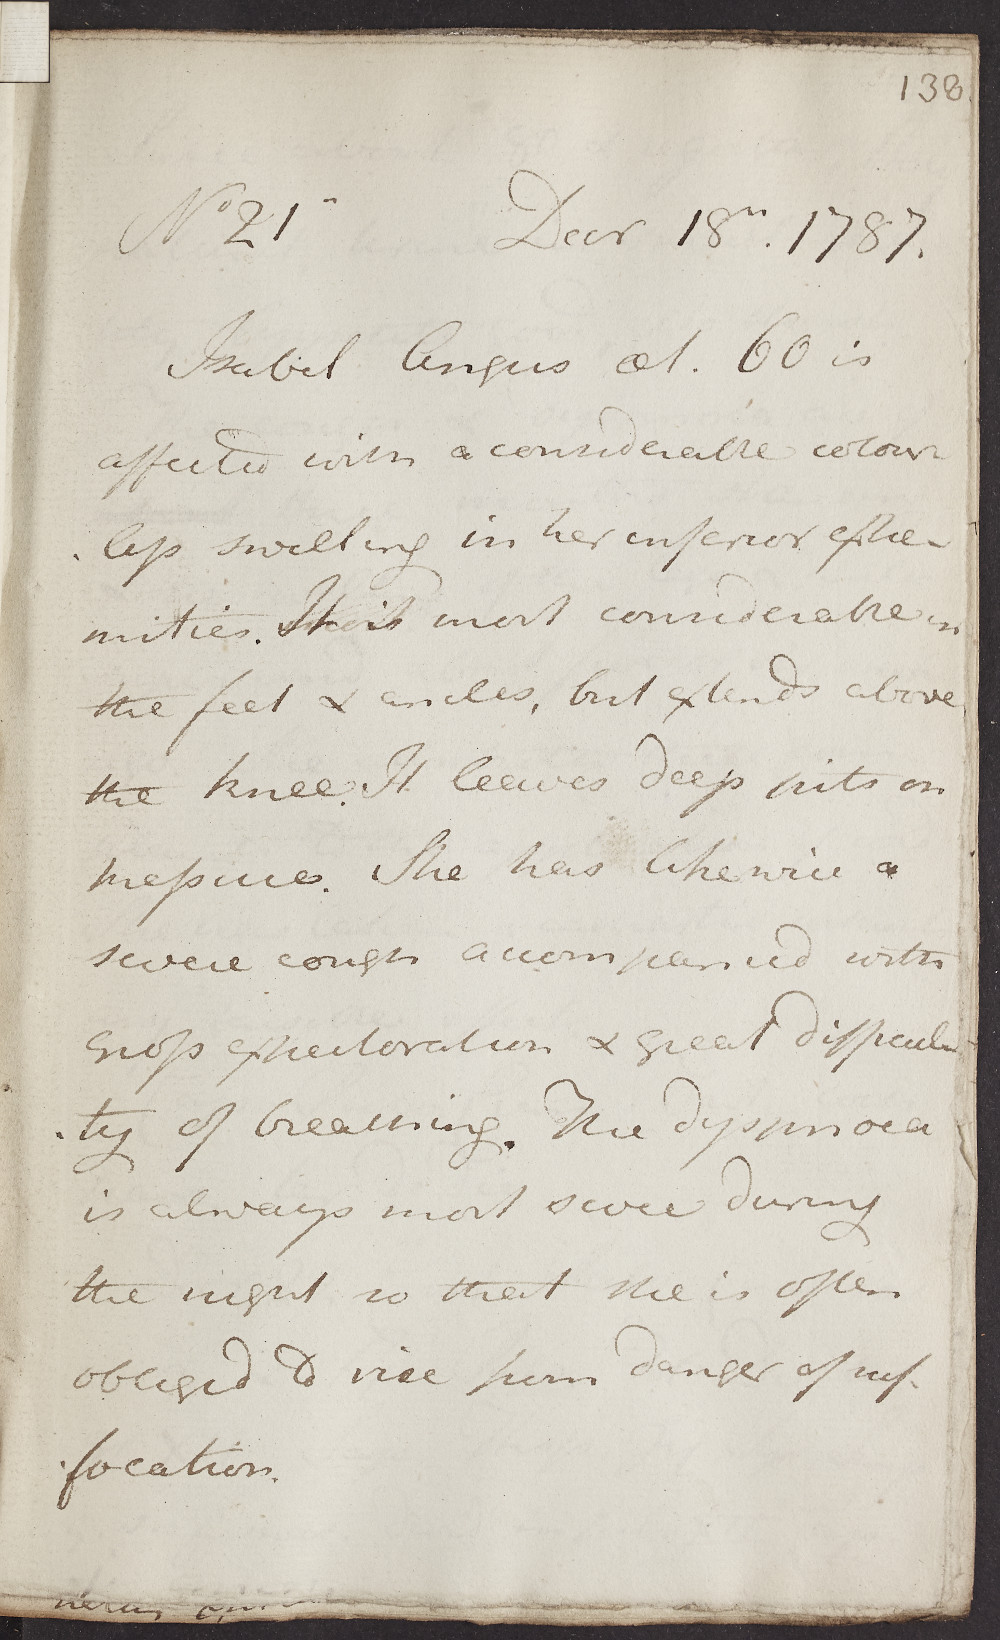 138
No 21 Decr 18th. 1787.
Isabel Angus æt. 60 is
affected with a considerable colour
less swelling in her inferior extre-
mities. It is most considerable in
the feet & ancles, but extends above
the knee. It leaves deep pits on
pressure. She has likewise a
severe cough accompanied with
gross expectoration & great difficul-
ty of breathing. The dyspnoea
is always most severe during
the night so that she is often
obliged to rise from danger of suf-
focation.